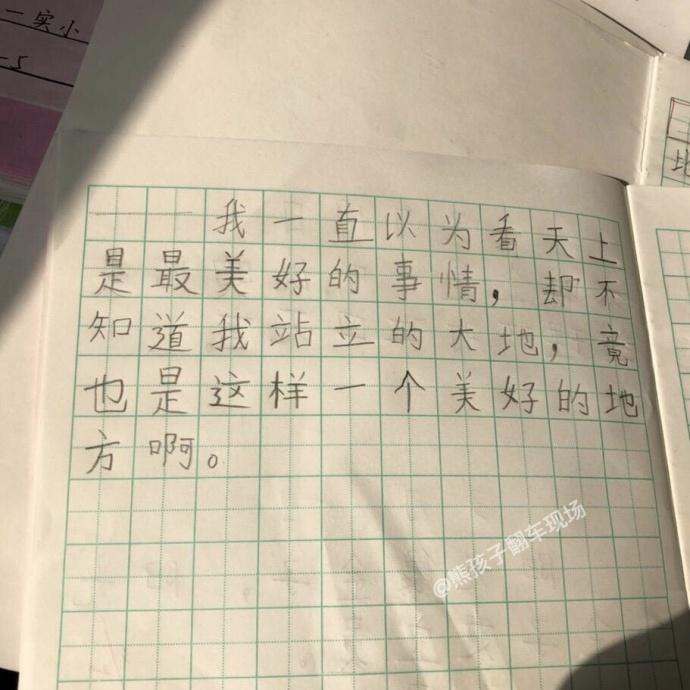 一实小
我一直以为看天上
是最美好的事情，却不
知道我站立的大地，竟
也是这样一个美好的地
方啊。
地
@熊孩子翻车现场